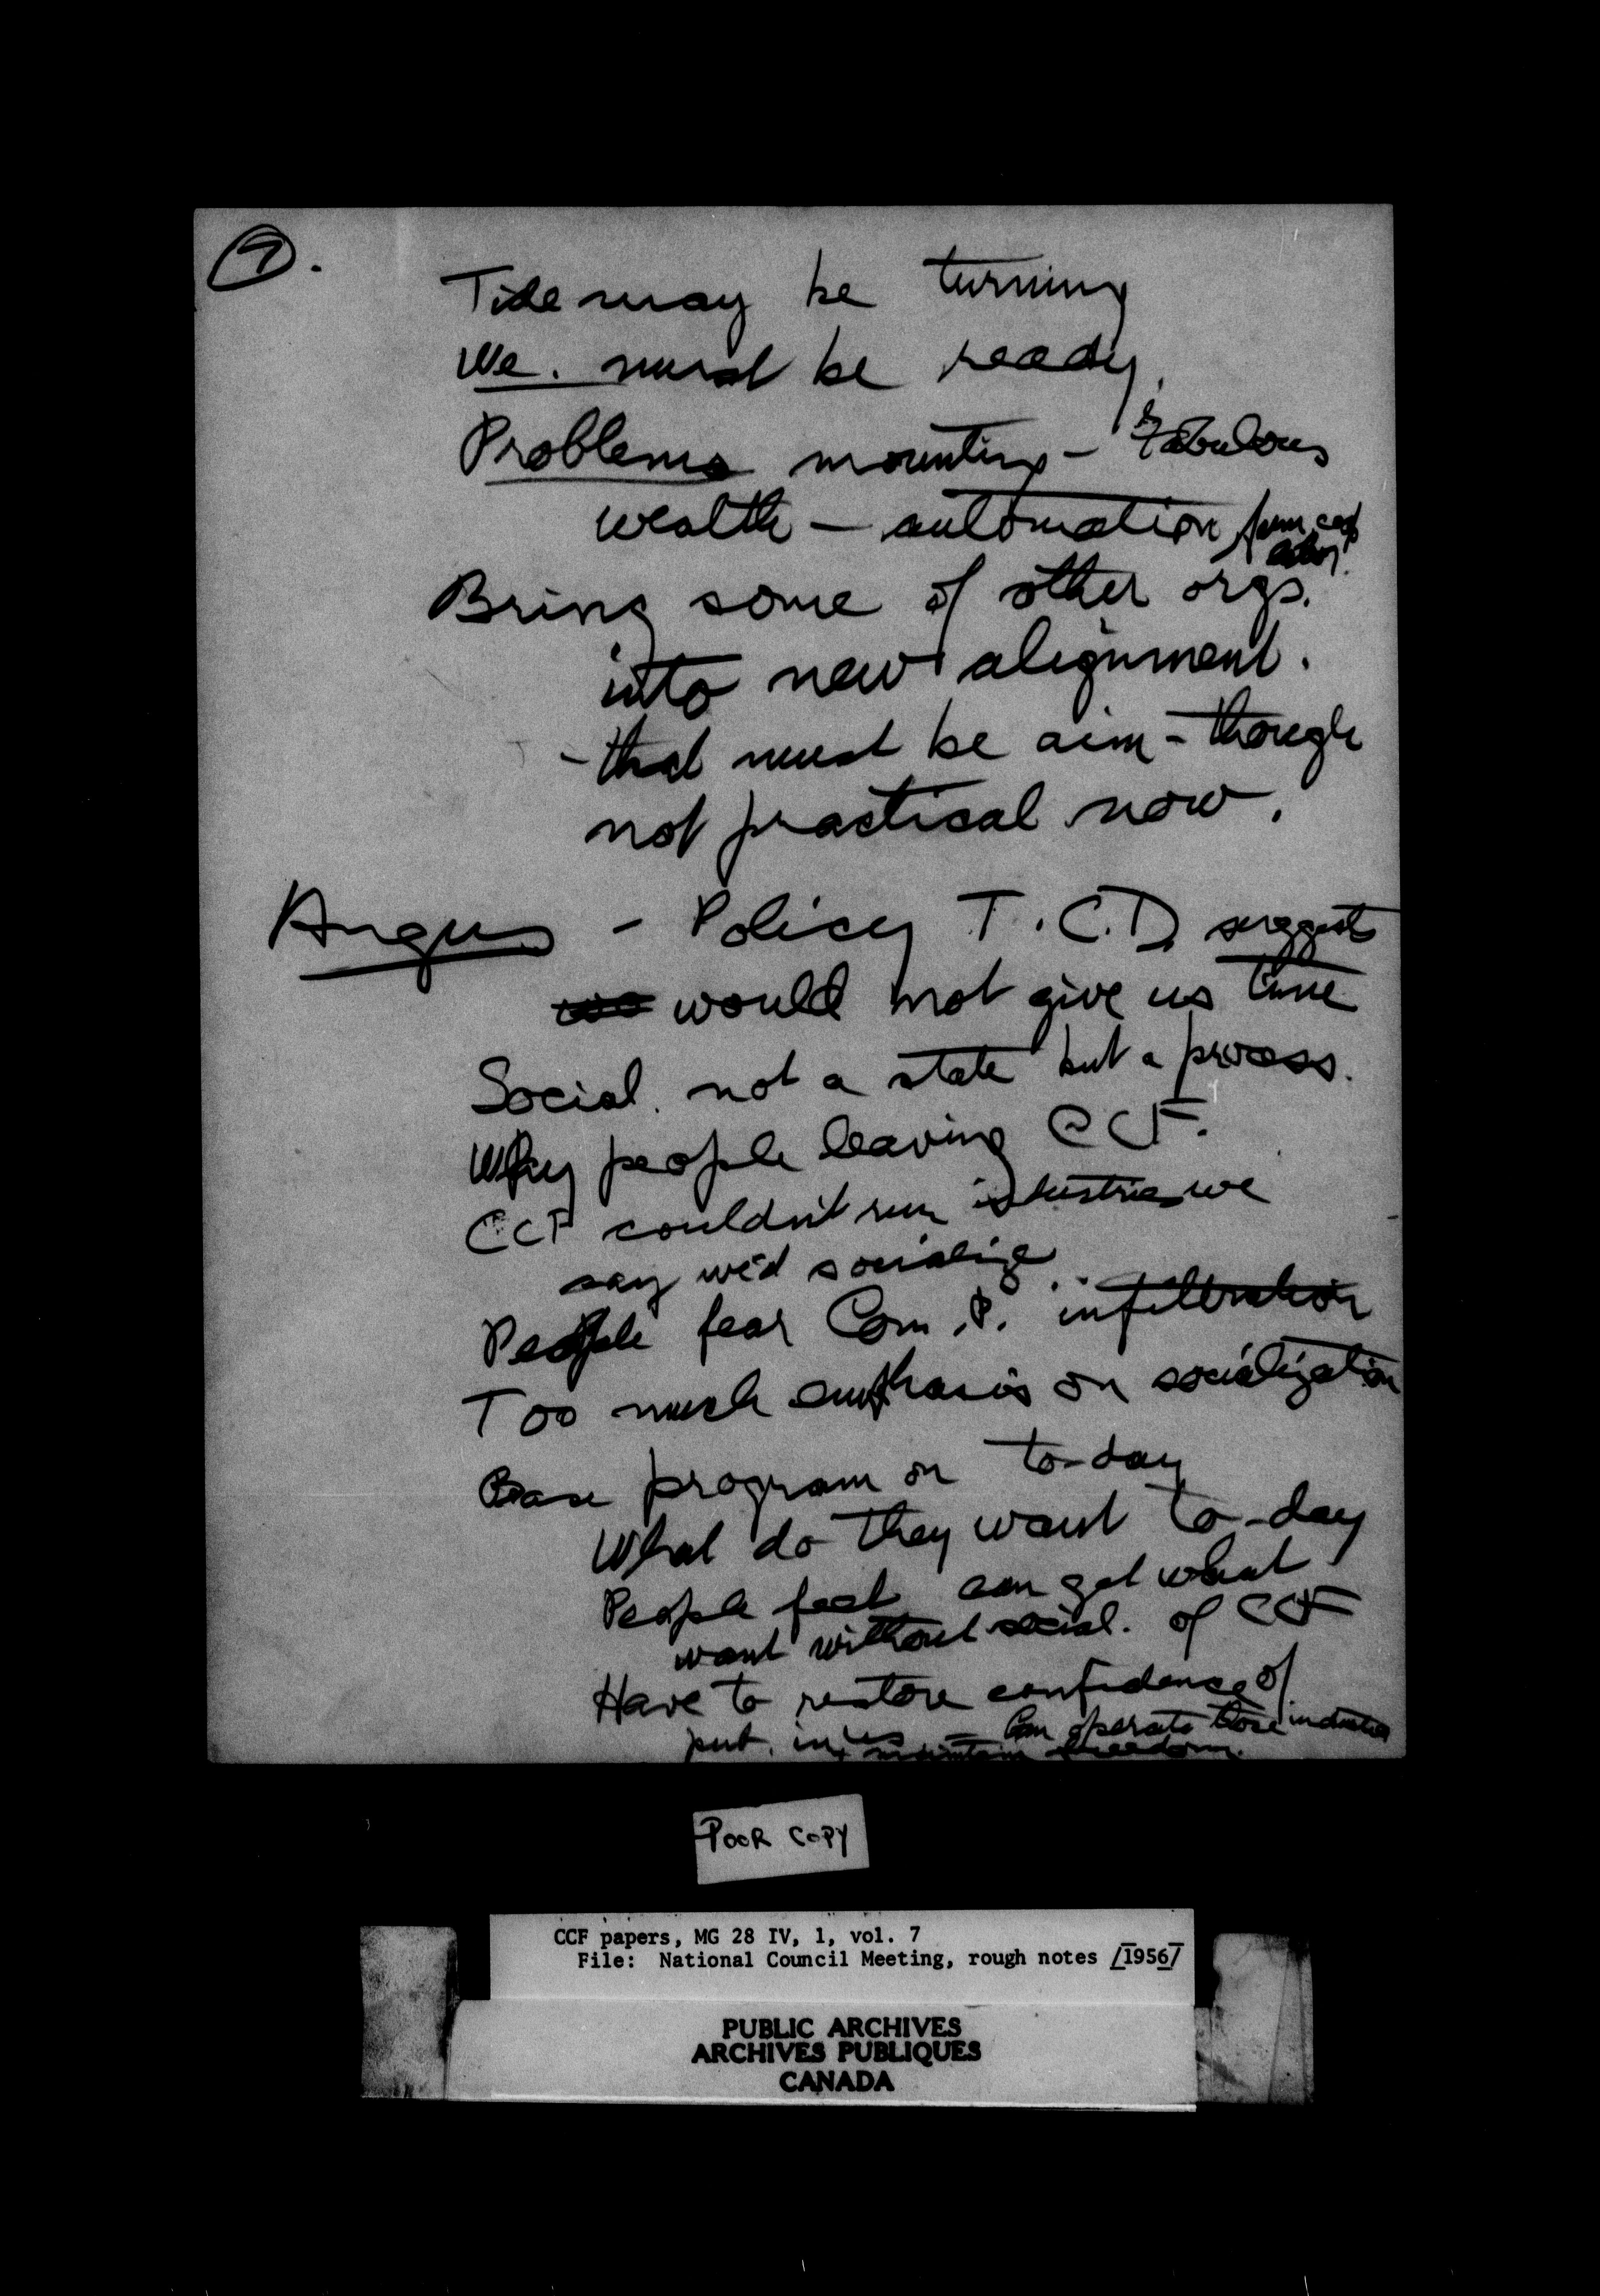 9.
Tide may be turning
We. must be ready.
Problems mounting - & fabulous
wealth - automation farm, coop
labor.
Bring some of other orgs.
into new alignment.
- that must be aim - though
not practical now.
Angus - Policy T.C.D. suggests
would not give us time
Social. not a state but a process.
Why people leaving CCF.
CCF couldn't run industries we
say we'd socialize
People fear Com. P. infiltration
Too much emphasis on socialization
Base program on to-day
What do they want to-day
People feel can get what
want without social. of CCF
Have to restore confidence of
pub. in us - Can operate those industries
& maintain freedom.
POOR COPY
CCF papers, MG 28 IV, 1, vol. 7
File: National Council Meeting, rough notes /1956/
PUBLIC ARCHIVES
ARCHIVES PUBLIQUES
CANADA